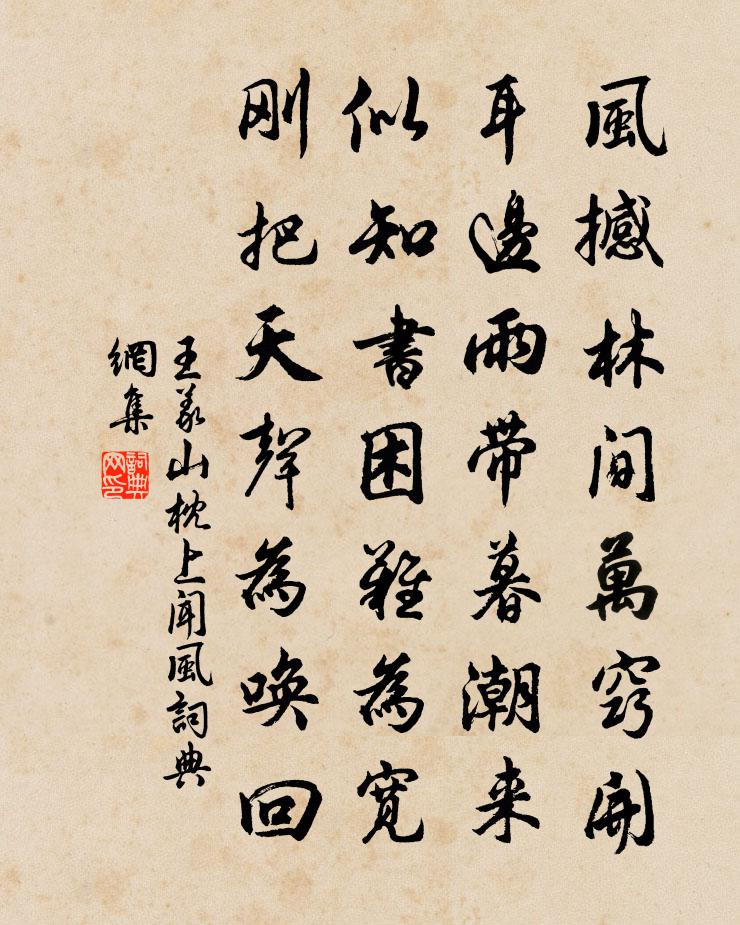 風撼林間萬竅開
耳邊雨帶暮潮来
似知書困難為寬
刚把天聲為喚回
王義山枕上聞風詞典
網集
詞典网印